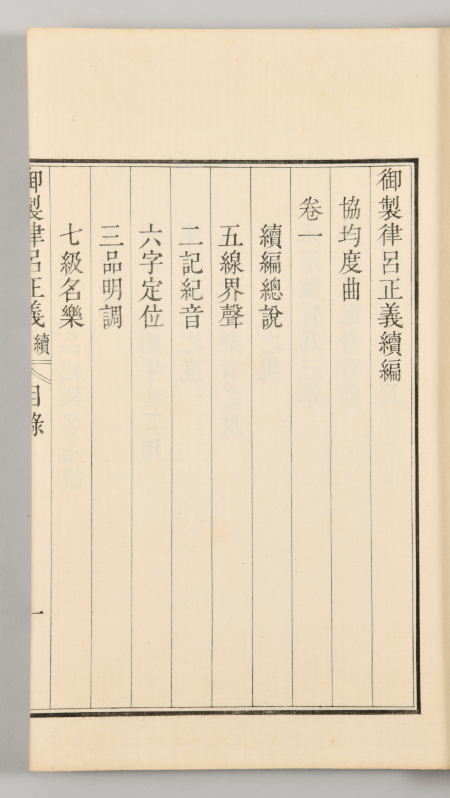 御製律呂正義續編
協均度曲
卷一
續編總說
五線界聲
二記紀音
六字定位
三品明調
七級名樂
御製律呂正義續 目錄 一